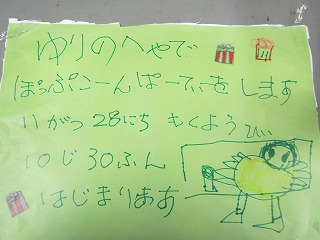 ゆりのへやで
ぽっぷこーんぱーてぃを します
11がつ 28にち もくようひぃ
10じ30ふん
はじまりあす